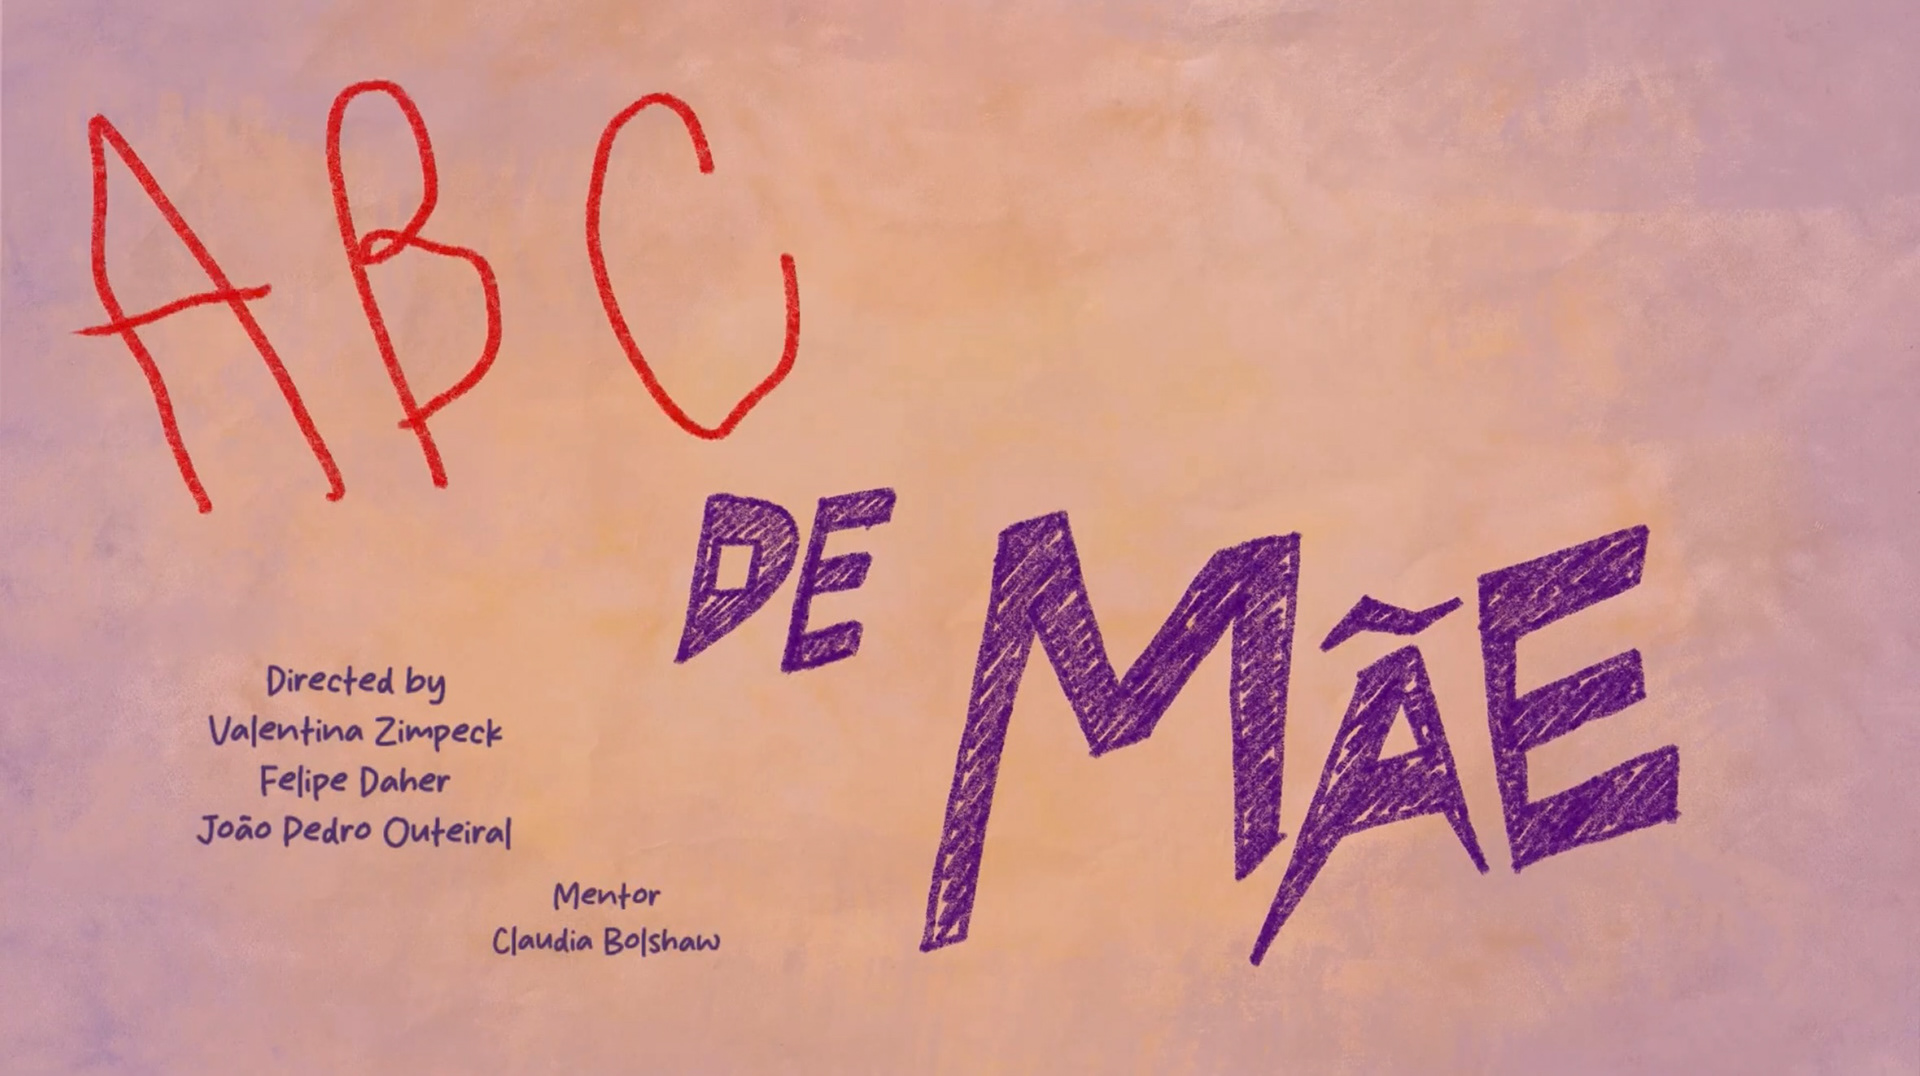 ABC
DE MÃE
Directed by
Valentina Zimpeck
Felipe Daher
João Pedro Outeiral
Mentor
Claudia Bolshaw